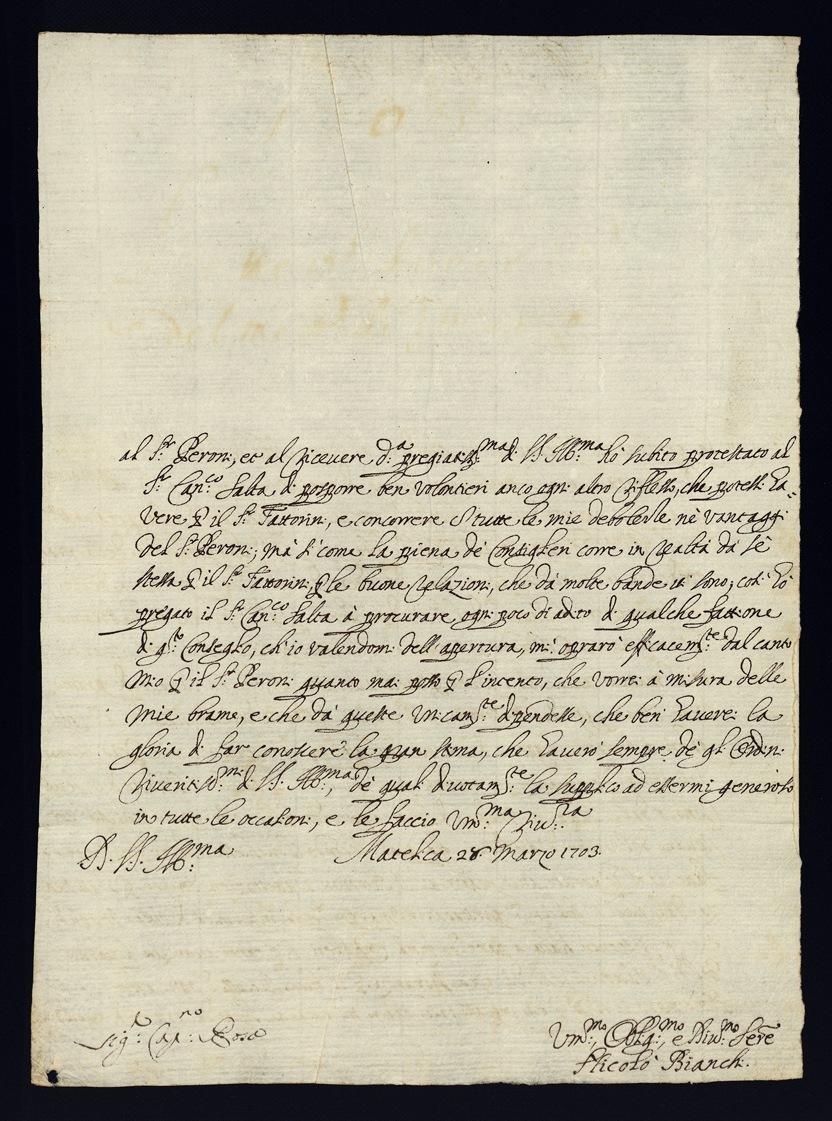 al S.r Peroni, et al ricevere d.a pregiatiss.ma di V.S. Ill.ma hò subito protestato al
S.r Can.co Salta di posporre ben volontieri anco ogni altro riflesso, che potessi ha-
vere p il S.r Fattorini, e concorrere tutte le mie debolezze nè vantaggi
del S.r Peroni; mà si come la piena de Consiglieri corre in realtà da sè
stessa p il S.r Fattorini p le buone relazioni, che da molte bande vi sono; così hò
pregato il S.r Can.co Salta à procurare ogni poco di adito di qualche fattione
di q.to Conseglio, ch'io valendomi dell'apertura, mi oprarò efficacem.te dal canto
mio p il S.r Peroni quanto mai posso p l'incento, che vorrei à misura delle
mie brame, e che da queste unicam.te dipendesse, che ben haverei la
gloria di far conoscere la gran stima, che haverò sempre de gl'Ordini
riveritiss.mi di V.S. Ill.ma, de quali divotam.te la supplico ad essermi generoso
in tutte le occasioni, e le faccio um.ma riv.za
Di V.S. Ill.ma Matelica 28 Marzo 1703.
Sig.r Cap.no Rosa
Um.mo, Oblig.mo, e Div.mo Ser.re
Nicolò Bianchi.